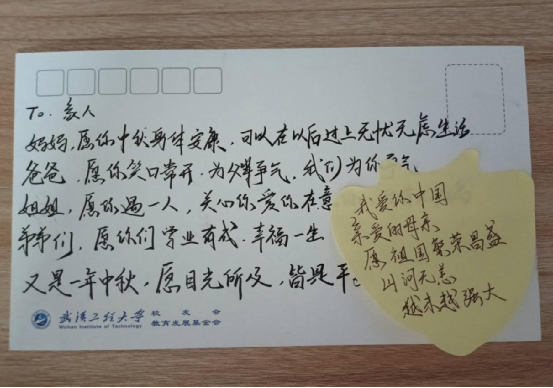 To. 家人
妈妈,愿你中秋身体安康,可以在以后过上无忧无虑生活
爸爸,愿你笑口常开,为父争气,我们为你
姐姐,愿你遇一人,关心你爱你在意
弟弟们,愿你们学业有成,幸福一生
又是一年中秋,愿目光所及,皆是平
武汉工程大学 校友会
Wuhan Institute of Technology 教育发展基金会
我爱你中国
亲爱的母亲
愿祖国繁荣昌盛
山河无恙
越来越强大